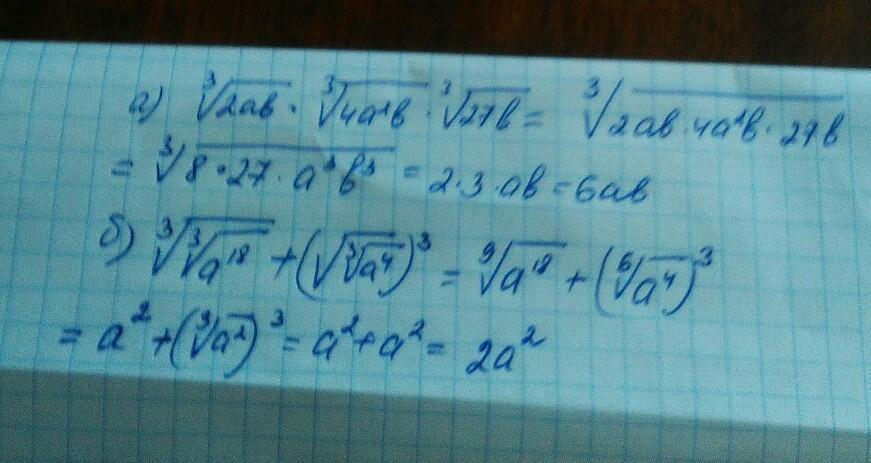 а) ∛(2ab) · ∛(4a²b) · ∛(27b) = ∛(2ab·4a²b·27b)
= ∛(8·27·a³b³) = 2·3·ab = 6ab
б) ∛(∛(a¹⁸)) + (√(∛(a⁴)))³ = ⁹√(a¹⁸) + (⁶√(a⁴))³
= a² + (∛(a²))³ = a² + a² = 2a²